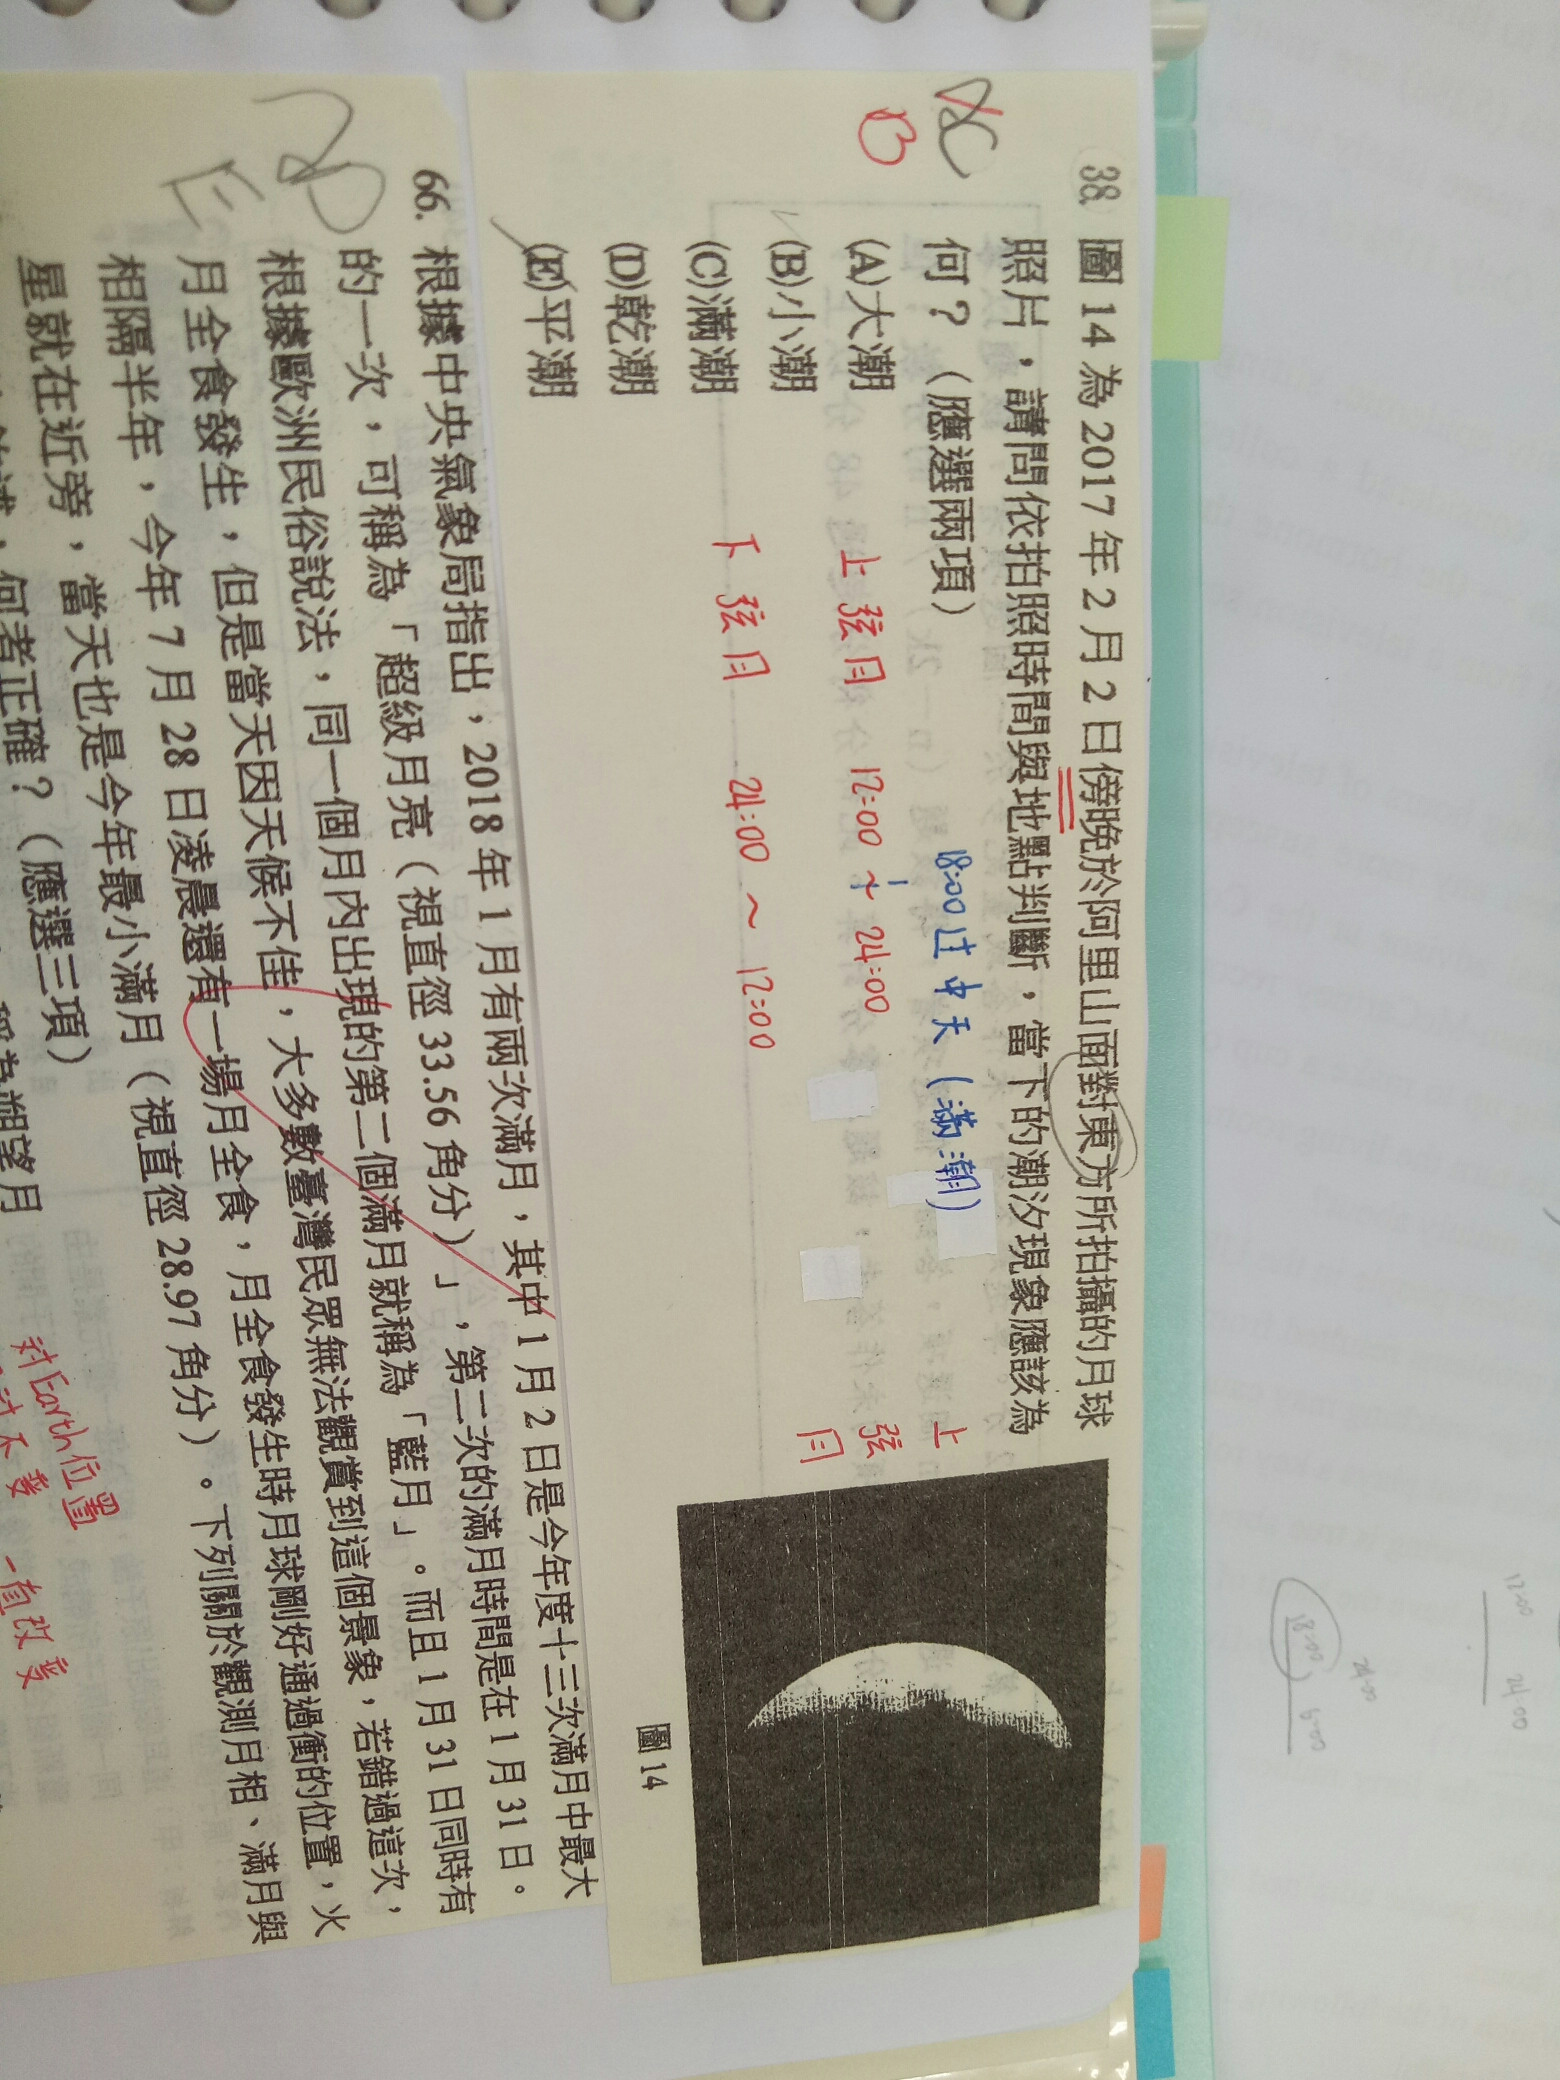 38. 圖 14 為 2017 年 2 月 2 日傍晚於阿里山面對東方所拍攝的月球
照片，請問依拍照時間與地點判斷，當下的潮汐現象應該為
何？（應選兩項）
18:00過中天（滿潮）
BC
(A)大潮
上弦月 12:00 ~ 24:00
(B)小潮
(C)滿潮
下弦月 24:00 ~ 12:00
(D)乾潮
(E)平潮
上弦月
圖 14
66. 根據中央氣象局指出，2018 年 1 月有兩次滿月，其中 1 月 2 日是今年度十三次滿月中最大
的一次，可稱為「超級月亮（視直徑 33.56 角分）」，第二次的滿月時間是在 1 月 31 日。
根據歐洲民俗說法，同一個月內出現的第二個滿月就稱為「藍月」。而且 1 月 31 日同時有
月全食發生，但是當天因天候不佳，大多數臺灣民眾無法觀賞到這個景象，若錯過這次，
相隔半年，今年 7 月 28 日凌晨還有一場月全食，月全食發生時月球剛好通過衝的位置，火
星就在近旁，當天也是今年最小滿月（視直徑 28.97 角分）。下列關於觀測月相、滿月與
何者正確？（應選三項）
對Earth位置
不變 一直改變
朔望月
12:00 24:00
18:00
24:00